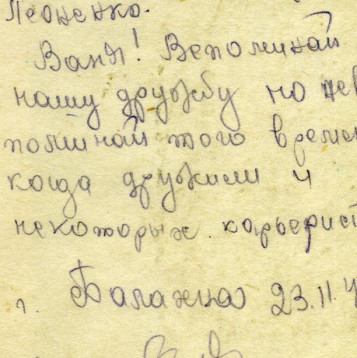 Леоненко.
Ваня! Вспоминай
нашу дружбу но не в
поминай того времен
когда дружили и
некоторых карьерист
г. Балахна 23.11.4